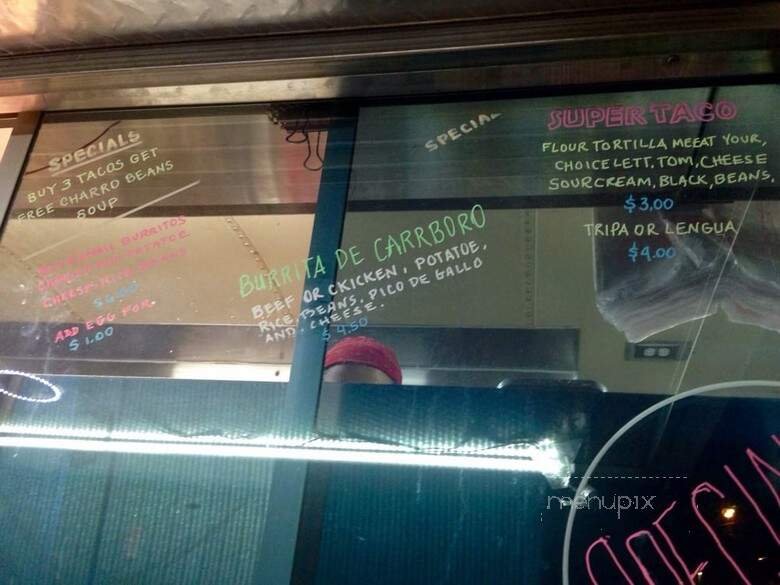 SPECIALS
BUY 3 TACOS GET
FREE CHARRO BEANS
SOUP
BURRITOS
POTATOE
ADD EGG FOR
$1.00
BURRITA DE CARRBORO
BEEF OR CKICKEN, POTATOE,
RICE, BEANS, PICO DE GALLO
AND. CHEESE.
$4.50
SPECIAL
SUPER TACO
FLOUR TORTILLA, MEEAT YOUR,
CHOICE LETT, TOM, CHEESE
SOUR CREAM, BLACK, BEANS,
$3.00
TRIPA OR LENGUA
$4.00
menupix